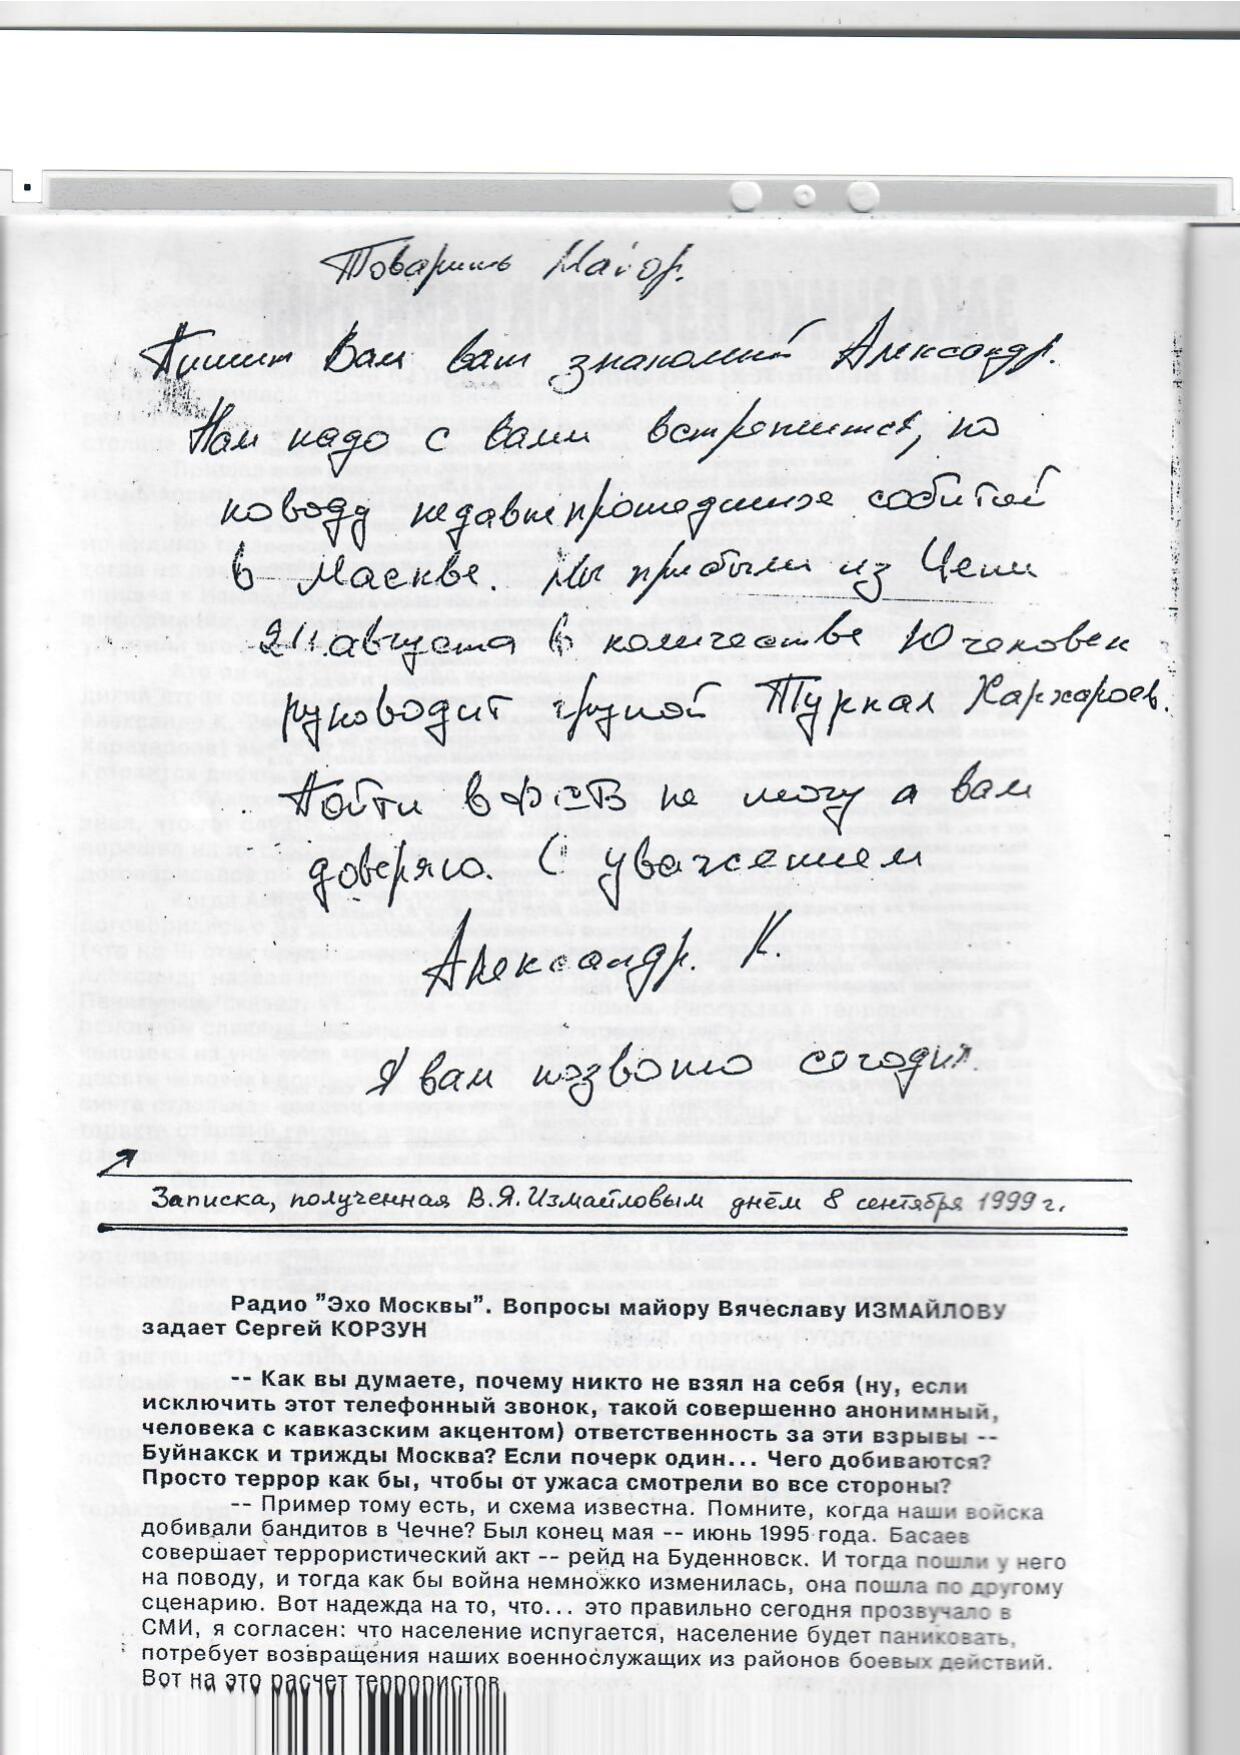 Товаришь Майор.
Пишит Вам ваш знакомий Александр.
Нам надо с вами встретится, по
поводу недавне прошедших собитой
в Маскве. Мы прибыли из Чени
августа в количестве 10 человек
руководит групой Турпал Каржароев.
Пойти в ФСБ не могу а вам
доверяю. С уважением
Александр. К.
Я вам позвоню сегодня.
Записка, полученная В.Я.Измайловым днём 8 сентября 1999 г.
Радио "Эхо Москвы". Вопросы майору Вячеславу ИЗМАЙЛОВУ
задает Сергей КОРЗУН
-- Как вы думаете, почему никто не взял на себя (ну, если
исключить этот телефонный звонок, такой совершенно анонимный,
человека с кавказским акцентом) ответственность за эти взрывы --
Буйнакск и трижды Москва? Если почерк один... Чего добиваются?
Просто террор как бы, чтобы от ужаса смотрели во все стороны?
-- Пример тому есть, и схема известна. Помните, когда наши войска
добивали бандитов в Чечне? Был конец мая -- июнь 1995 года. Басаев
совершает террористический акт -- рейд на Буденновск. И тогда пошли у него
на поводу, и тогда как бы война немножко изменилась, она пошла по другому
сценарию. Вот надежда на то, что... это правильно сегодня прозвучало в
СМИ, я согласен: что население испугается, население будет паниковать,
потребует возвращения наших военнослужащих из районов боевых действий.
Вот на это расчет террористов